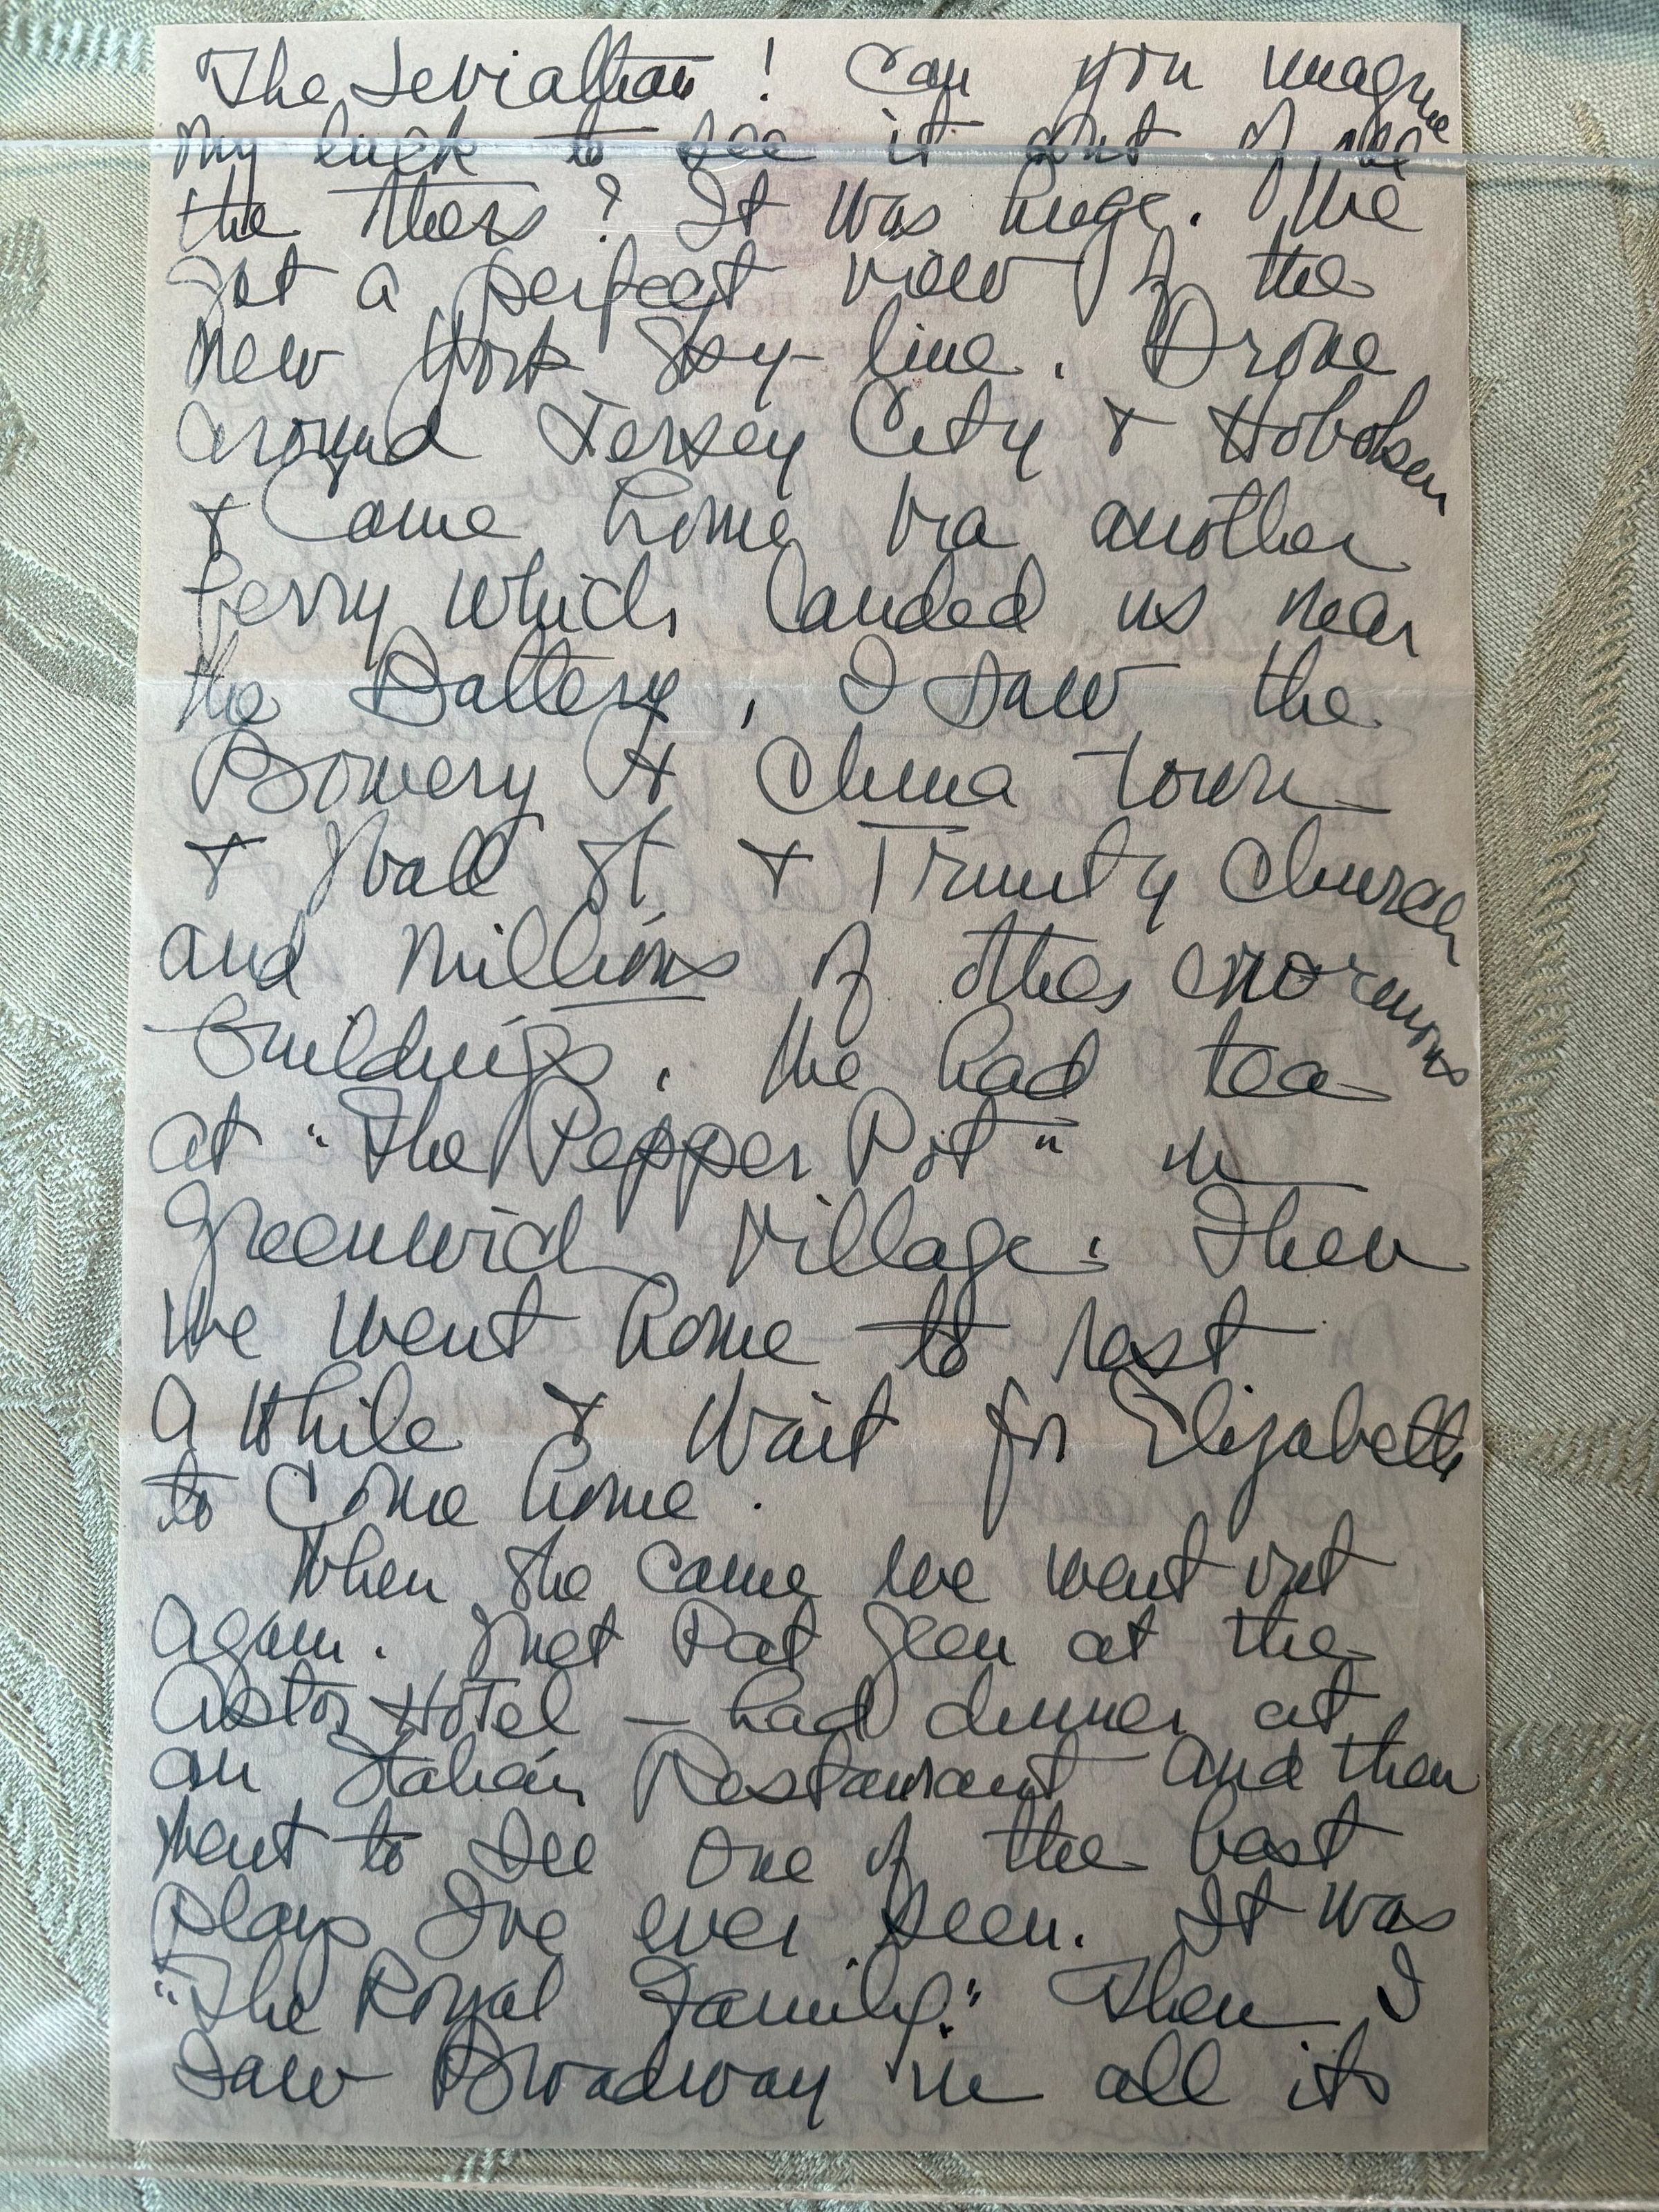 The Leviathan! Can you imagine
my luck to see it out of all
the others? It was huge. We
got a perfect view of the
New York Sky-line. Drove
around Jersey City & Hoboken
& Came home via another
ferry which landed us near
the Battery. I saw the
Bowery & China town
& Wall St & Trinity Church
and millions of other enormous
buildings. We had tea
at "The Pepper Pot" in
Greenwich Village. Then
we went home to rest
a while & wait for Elizabeth
to Come home.
When she came we went out
again. Met Pat Glen at the
Astor Hotel — had dinner at
an Italian Restaurant and then
went to see one of the best
plays I've ever seen. It was
"The Royal Family." Then I
saw Broadway in all its